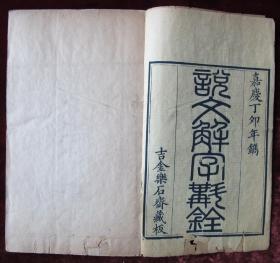 嘉慶丁卯年鐫
說文解字斠詮
吉金樂石齋藏板